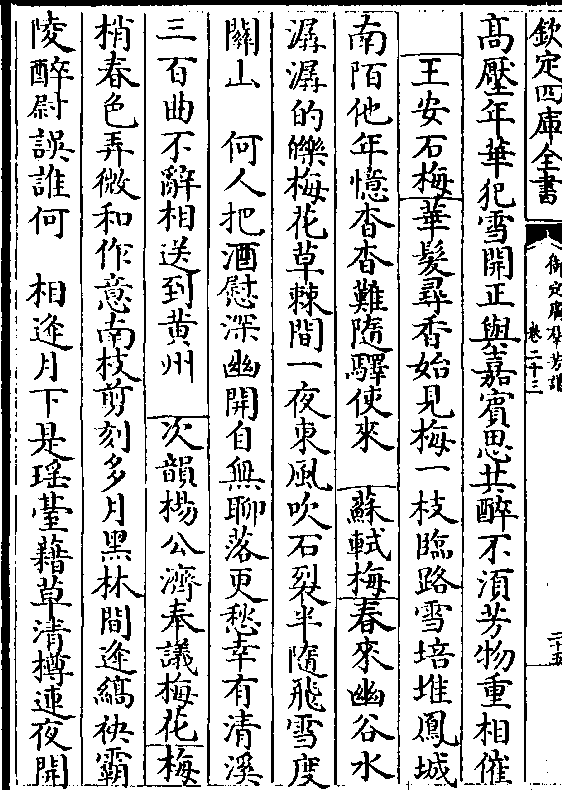 欽定四庫全書
御定廣羣芳譜
卷二十三
二十五
高壓年華犯雪開正與嘉賓思共醉不湏芳物重相催
王安石梅華髮尋香始見梅一枝臨路雪培堆鳳城
南陌他年憶杳杳難隨驛使來　蘇軾梅春來幽谷水
潺潺的皪梅花草棘間一夜東風吹石裂半隨飛雪度
關山　何人把酒慰深幽開自無聊落更愁幸有清溪
三百曲不辭相送到黄州　次韻楊公濟奉議梅花梅
梢春色弄微和作意南枝剪刻多月黑林間逢縞袂霸
陵醉尉誤誰何　相逢月下是瑶臺藉草清樽連夜開